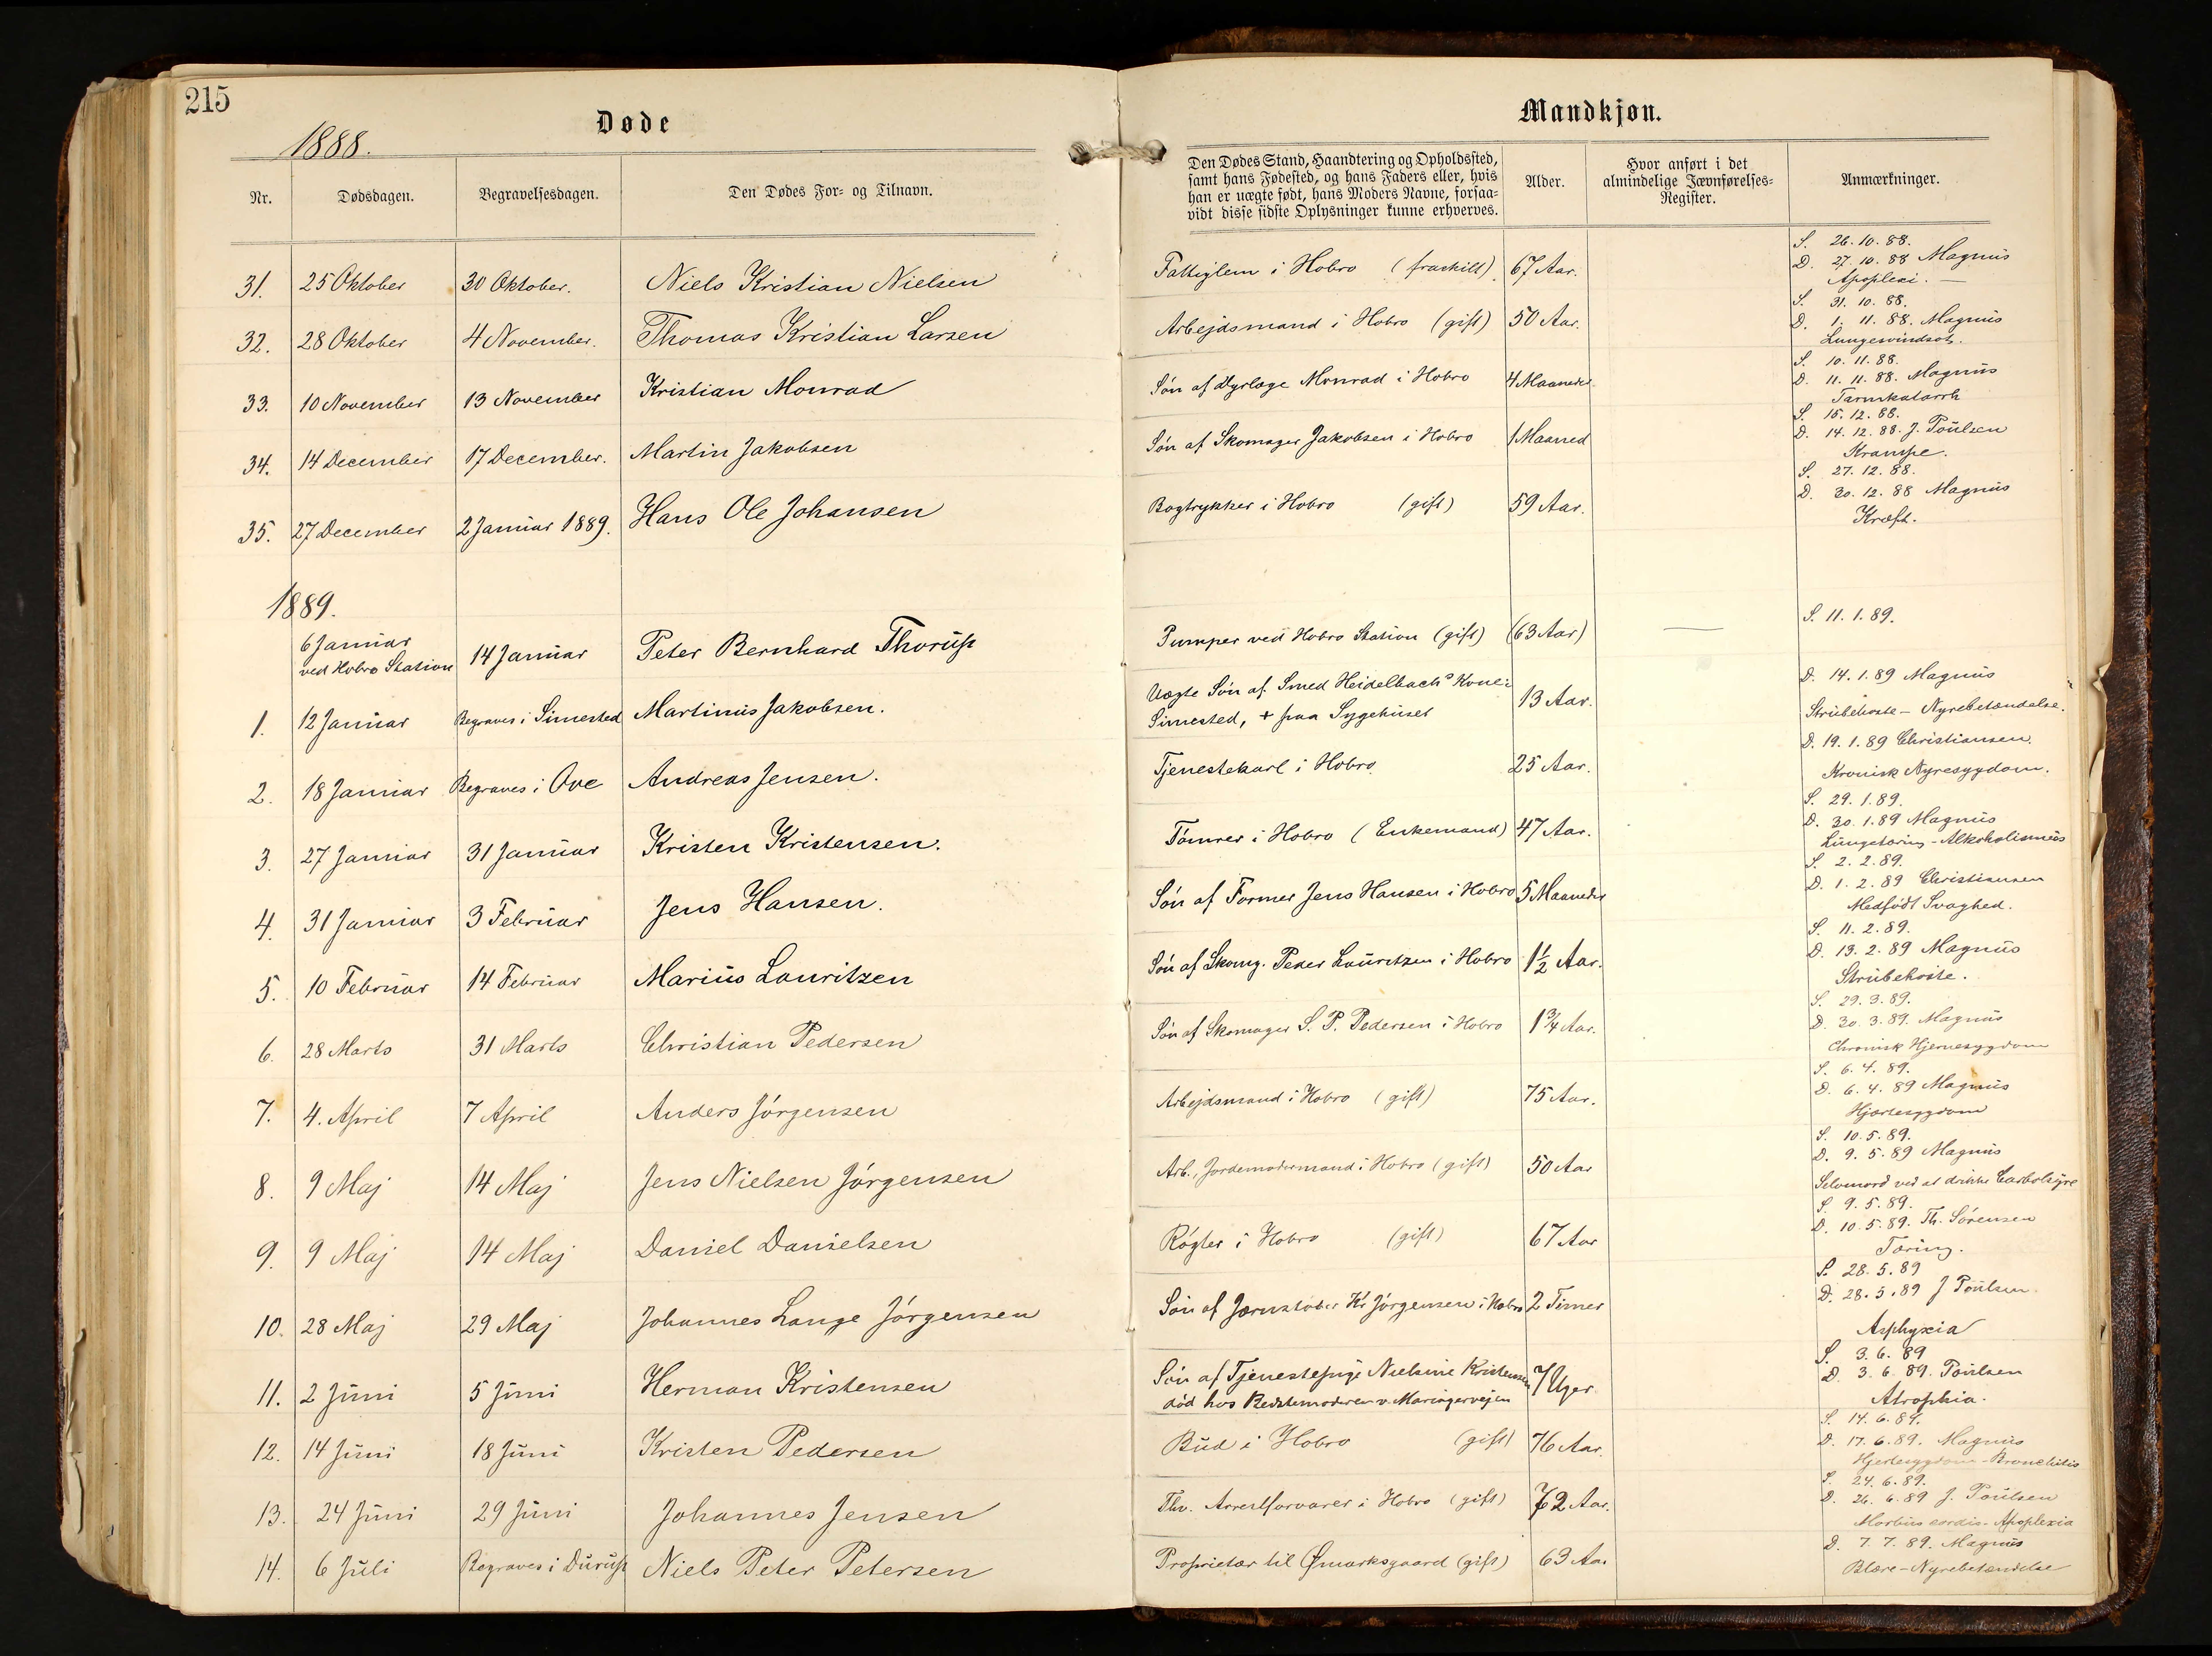 215
Døde
Mandkjøn.
1888.
Nr.
Dødsdagen.
Begravelsesdagen.
Den Dødes For- og Tilnavn.
Den Dødes Stand, Haandtering og Opholdssted,
samt hans Fødested, og hans Faders eller, hvis
han er uægte født, hans Moders Navne, forsaa-
vidt disse sidste Oplysninger kunne erhverves.
Alder.
Hvor anført i det
almindelige Jævnførelses-
Register.
Anmærkninger.
31. 25 Oktober 30 Oktober. Niels Kristian Nielsen Fattiglem i Hobro (fraskilt) 67 Aar.
S. 26.10.88.
D. 27.10.88 Magnus
Apoplexi. —
32. 28 Oktober 4 November. Thomas Kristian Larsen Arbejdsmand i Hobro (gift) 50 Aar.
S. 31.10.88.
D. 1.11.88. Magnus
Lungesvindsot.
33. 10 November 13 November Kristian Monrad Søn af Dyrlæge Monrad i Hobro 4 Maaneder
S. 10.11.88.
D. 11.11.88. Magnus
Tarmkatarrh
34. 14 December 17 December. Martin Jakobsen Søn af Skomager Jakobsen i Hobro 1 Maaned
S. 15.12.88.
D. 14.12.88. J. Poulsen
Krampe.
35. 27 December 2 Januar 1889. Hans Ole Johansen Bogtrykker i Hobro (gift) 59 Aar.
S. 27.12.88.
D. 30.12.88 Magnus
Kræft.
1889.
6 Januar
ved Hobro Station 14 Januar Peter Bernhard Thorup Pumper ved Hobro Station (gift) (63 Aar) —
S. 11.1.89.
1. 12 Januar Begraves i Simested Martinus Jakobsen. Uægte Søn af Smed Heidelbachs Kone i
Simested, + paa Sygehuset 13 Aar.
D. 14.1.89 Magnus
Strubehoste - Nyrebetændelse.
2. 18 Januar Begraves i Ove Andreas Jensen. Tjenestekarl i Hobro 25 Aar.
D. 19.1.89 Christiansen.
Kronisk Nyresygdom.
3. 27 Januar 31 Januar Kristen Kristensen. Tømrer i Hobro (Enkemand) 47 Aar.
S. 29.1.89.
D. 30.1.89 Magnus
Lungetæring - Alkoholismus
4. 31 Januar 3 Februar Jens Hansen. Søn af Former Jens Hansen i Hobro 5 Maaneder
S. 2.2.89.
D. 1.2.89 Christiansen
Medfødt Svaghed.
5. 10 Februar 14 Februar Marius Lauritzen Søn af Skomg. Peder Lauritzen i Hobro 1½ Aar.
S. 11.2.89.
D. 13.2.89 Magnus
Strubehoste.
6. 28 Marts 31 Marts Christian Pedersen Søn af Skomager S. P. Pedersen i Hobro 1¾ Aar.
S. 29.3.89.
D. 30.3.89. Magnus
Chronisk Hjernesygdom
7. 4. April 7 April Anders Jørgensen Arbejdsmand i Hobro (gift) 75 Aar.
S. 6.4.89.
D. 6.4.89 Magnus
Hjertesygdom
8. 9 Maj 14 Maj Jens Nielsen Jørgensen Arb., Jordemodermand i Hobro (gift) 50 Aar
S. 10.5.89.
D. 9.5.89 Magnus
Selvmord ved at drikke Carbolsyre
9. 9 Maj 14 Maj Daniel Danielsen Røgter i Hobro (gift) 67 Aar
S. 9.5.89.
D. 10.5.89. Th. Sørensen
Tæring.
10. 28 Maj 29 Maj Johannes Lange Jørgensen Søn af Jernstøber Kr Jørgensen i Hobro 2 Timer
S. 28.5.89
D. 28.5.89 J Poulsen.
Asphyxia
11. 2 Juni 5 Juni Herman Kristensen Søn af Tjenestepige Nielsine Kristensen
død hos Bedstemoderen v. Mariagervejen 7 Uger
S. 3.6.89
D. 3.6.89. Poulsen
Atrophia.
12. 14 Juni 18 Juni Kristen Pedersen Bud i Hobro (gift) 76 Aar.
S. 14.6.89.
D. 17.6.89. Magnus
Hjertesygdom - Bronchitis
13. 24 Juni 29 Juni Johannes Jensen Fhv. Arrestforvarer i Hobro (gift) 72 Aar.
S. 24.6.89.
D. 26.6.89 J. Poulsen
Morbus cordis - Apoplexia
14. 6 Juli Begraves i Durup Niels Peter Petersen Proprietær til Ømarksgaard (gift) 63 Aar
D. 7.7.89. Magnus
Blære - Nyrebetændelse